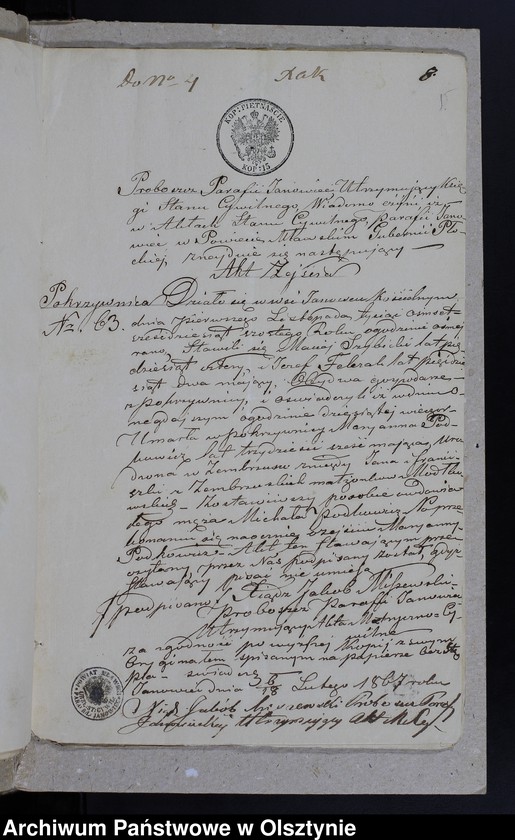 Do No 4
8
KOP: PIETNAŚCIE
KOP: 15
Proboszcz Parafii Janowiec, Utrzymujący Księ-
gi Stanu Cywilnego, Wiadomo czyni, iż
w Aktach Stanu Cywilnego Parafii Jano-
wiec w Powiecie Mławskim Gubernii Pło-
ckiej, znajduje się następujący
Akt Zejścia
Pokrzywnica
No. 63.
Działo się w wsi Janowcu Kościelnym,
dnia pierwszego Listopada, tysiąc ośmset
sześćdziesiąt szóstego roku, o godzinie ósmej
rano, Stawili się Maciej lat pięć-
dziesiąt cztery, i Józef lat pięćdzie-
siąt dwa mający, Obydwa gospodarze
z Pokrzywnicy, i oświadczyli iż w dniu o-
negdajszym o godzinie dziesiątej wieczór
Umarła w Pokrzywnicy Maryanna Pod-
lat trzydzieści sześć mająca, uro-
dzona w Zembrzusu z niegdy Jana i Franci-
szki z Zembrzuskich małżonków Modłko-
wskich – Zostawiwszy po sobie owdowia-
łego męża Michała Po prze-
konaniu się naocznie o zejściu Maryanny
Akt ten stawającym prze-
czytany, przez Nas podpisany został, gdyż
stawający pisać nie umieją
(podpisano) Xiądz Jakób
Proboszcz Parafii Janowca
Utrzymujący Akta Stanu Cy-
wilne
Za zgodność powyższej Kopii z swym
Oryginałem spisanym na papierze bez stę-
pla – świadczę
Janowiec dnia 6/18 Lutego 1867 roku
Xiądz Jakób Proboszcz Paraf
Janowieckiej Utrzymujący Akt
Archiwum Państwowe w Olsztynie